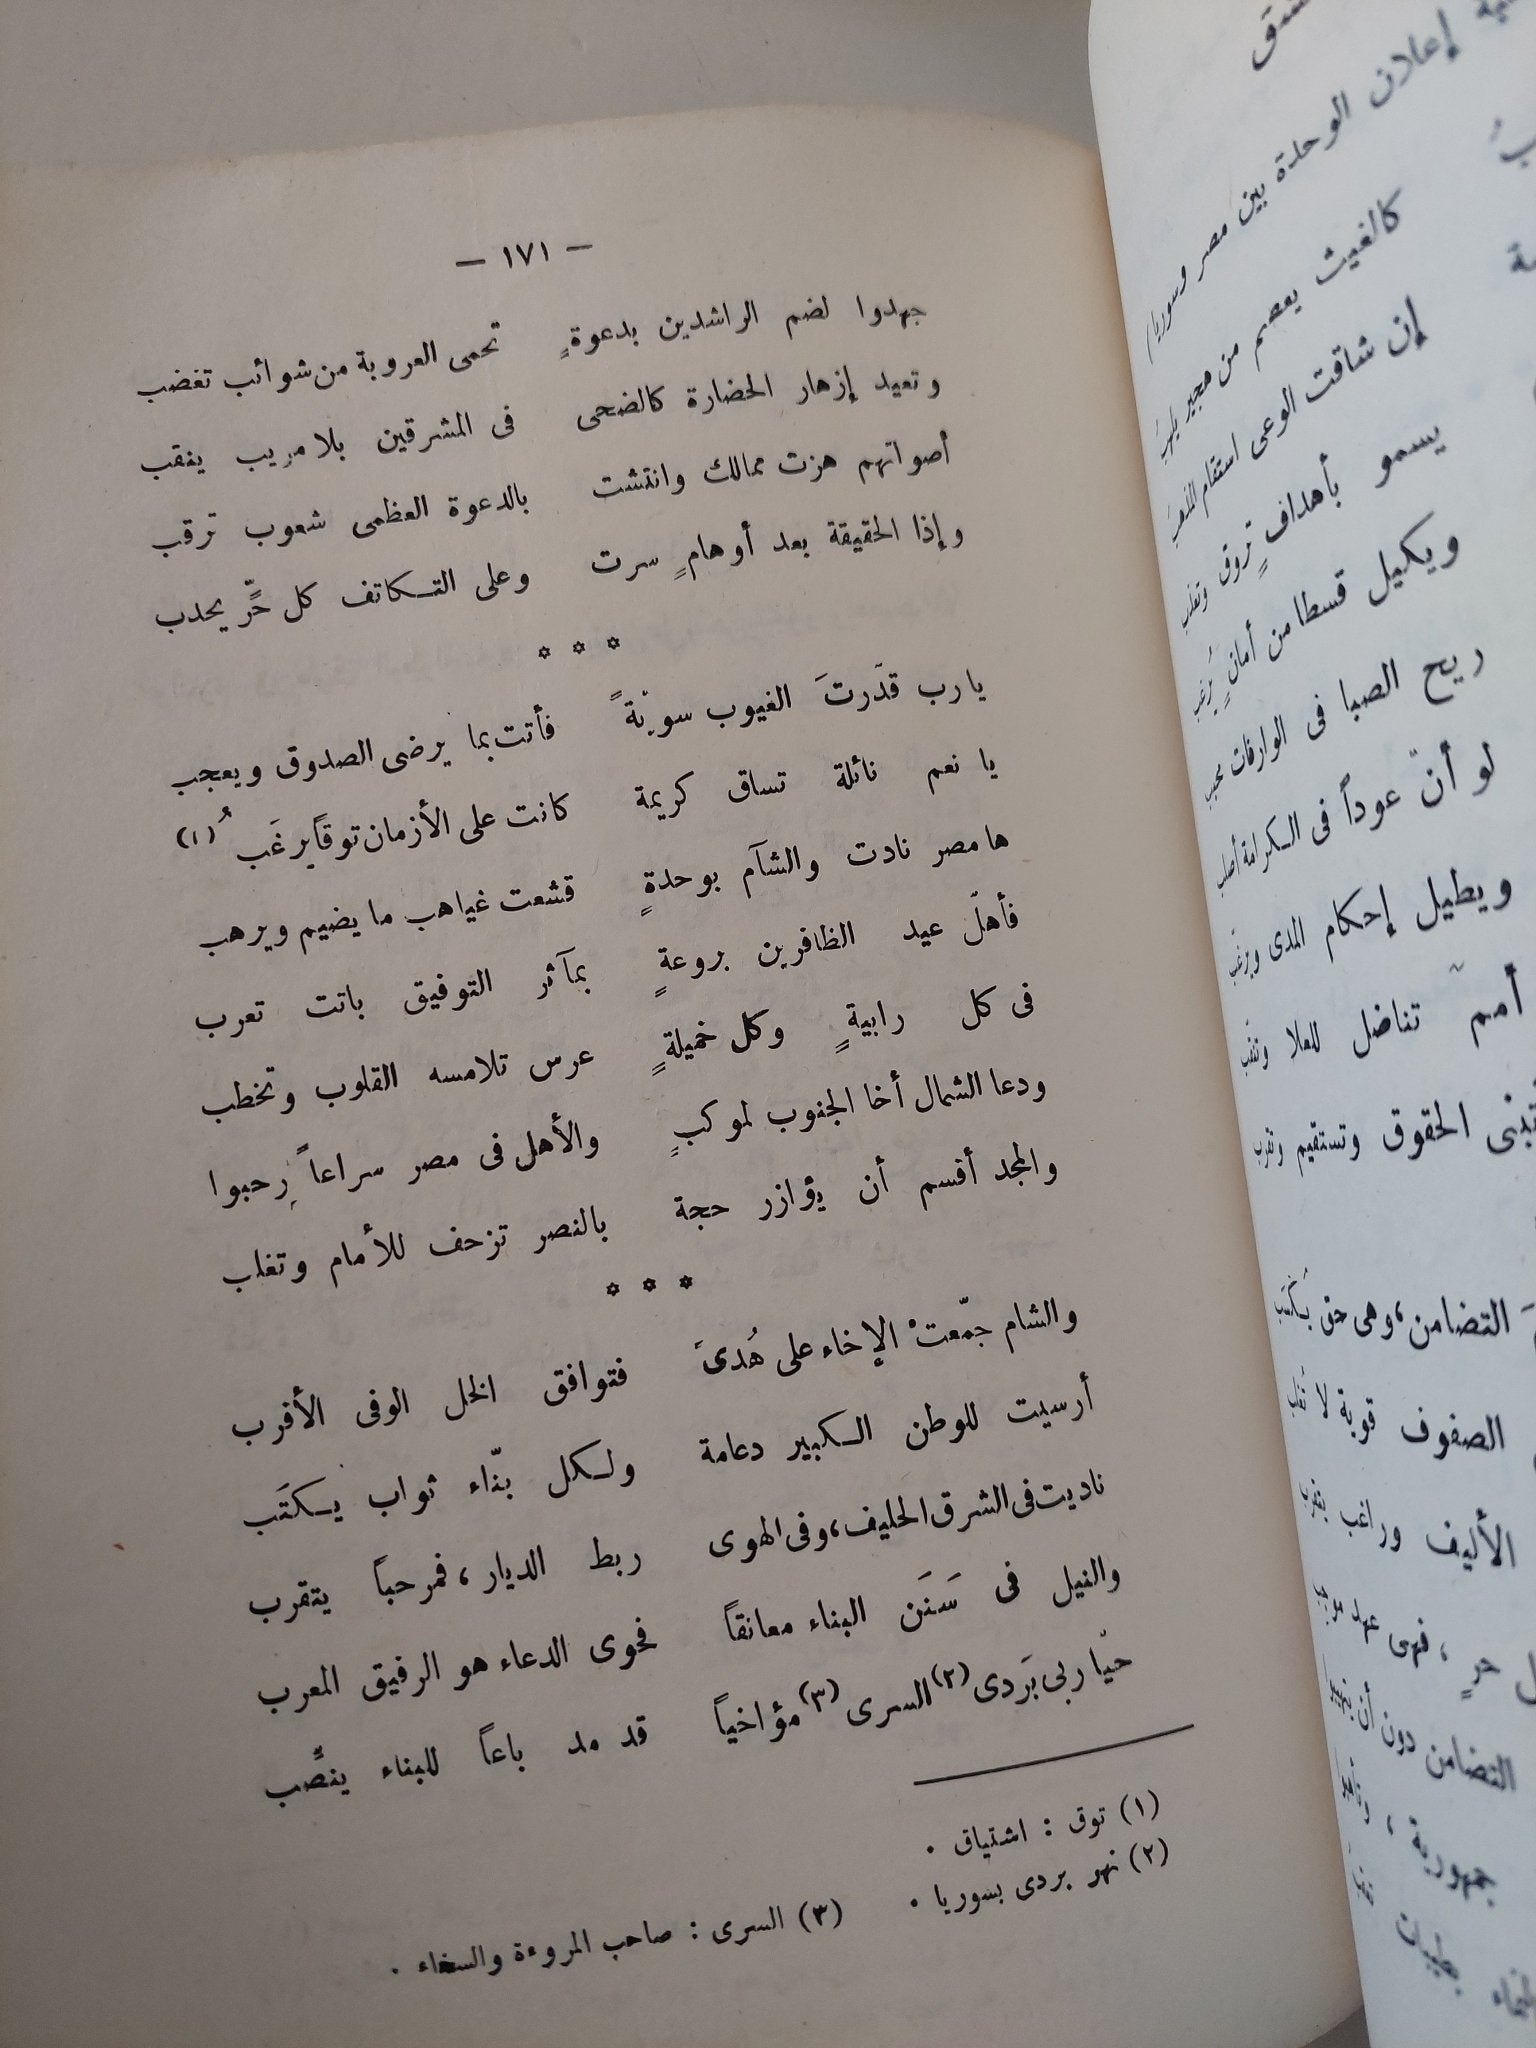 — ١٧١ —
جهدوا لضم الراشدين بدعوةٍ تحمى العروبة من شوائب تغضب
وتعيد إزهار الحضارة كالضحى فى المشرقين بلا مريب ينقب
أصواتهم هزت ممالك وانتشت بالدعوة العظمى شعوب ترقب
وإذا الحقيقة بعد أوهامٍ سرت وعلى التكاتف كل حرٍّ يحدب
* * *
يارب قدّرتَ الغيوب سويةً فأتت بما يرضى الصدوق ويعجب
يا نعم نائلة تساق كريمة كانت على الأزمان توقاً يرغَبُ (١)
ها مصر نادت والشآم بوحدةٍ قشعت غياهب ما يضيم ويرهب
فأهلّ عيد الظافرين بروعةٍ بمآثر التوفيق باتت تعرب
فى كل رابيةٍ وكل خميلةٍ عرس تلامسه القلوب وتخطب
ودعا الشمال أخا الجنوب لموكبٍ والأهل فى مصر سراعاً رحبوا
والمجد أقسم أن يؤازر حجة بالنصر تزحف للأمام وتغلب
* * *
والشام جمّعتْ الإخاء على هُدىً فتوافق الخل الوفى الأقرب
أرسيت للوطن الكبير دعامة ولكل بنّاء ثواب يكتَب
ناديت فى الشرق الحليف، وفى الهوى ربط الديار، فمرحباً يتقرب
والنيل فى سَنَن البناء معانقاً فحوى الدعاء هو الرفيق المعرب
حيّا ربى بَردى (٢) السرى (٣) مؤاخياً قد مد باعاً للبناء ينصَّب
(١) توق : اشتياق .
(٢) نهر بردى بسوريا . (٣) السرى : صاحب المروءة والسخاء .
إعلان الوحدة بين مصر وسوريا)
كالغيث يعصم من هجير يلهبُ
إن شاقت الوعى استقام المذهب
يسمو بأهدافٍ تروق وتعذب
ويكيل قسطا من أمانٍ يُرغب
ريح الصبا فى الوارفات
لو أنّ عوداً فى الكرامة أصلب
ويطيل إحكام المدى
أمم تناضل للعلا
الحقوق وتستقيم
التضامن، وهى حق يُكتَب
الصفوف قوية لا
الأليف وراغب
حرٍ، فهى عهد
التضامن دون أن
جمهورية ،